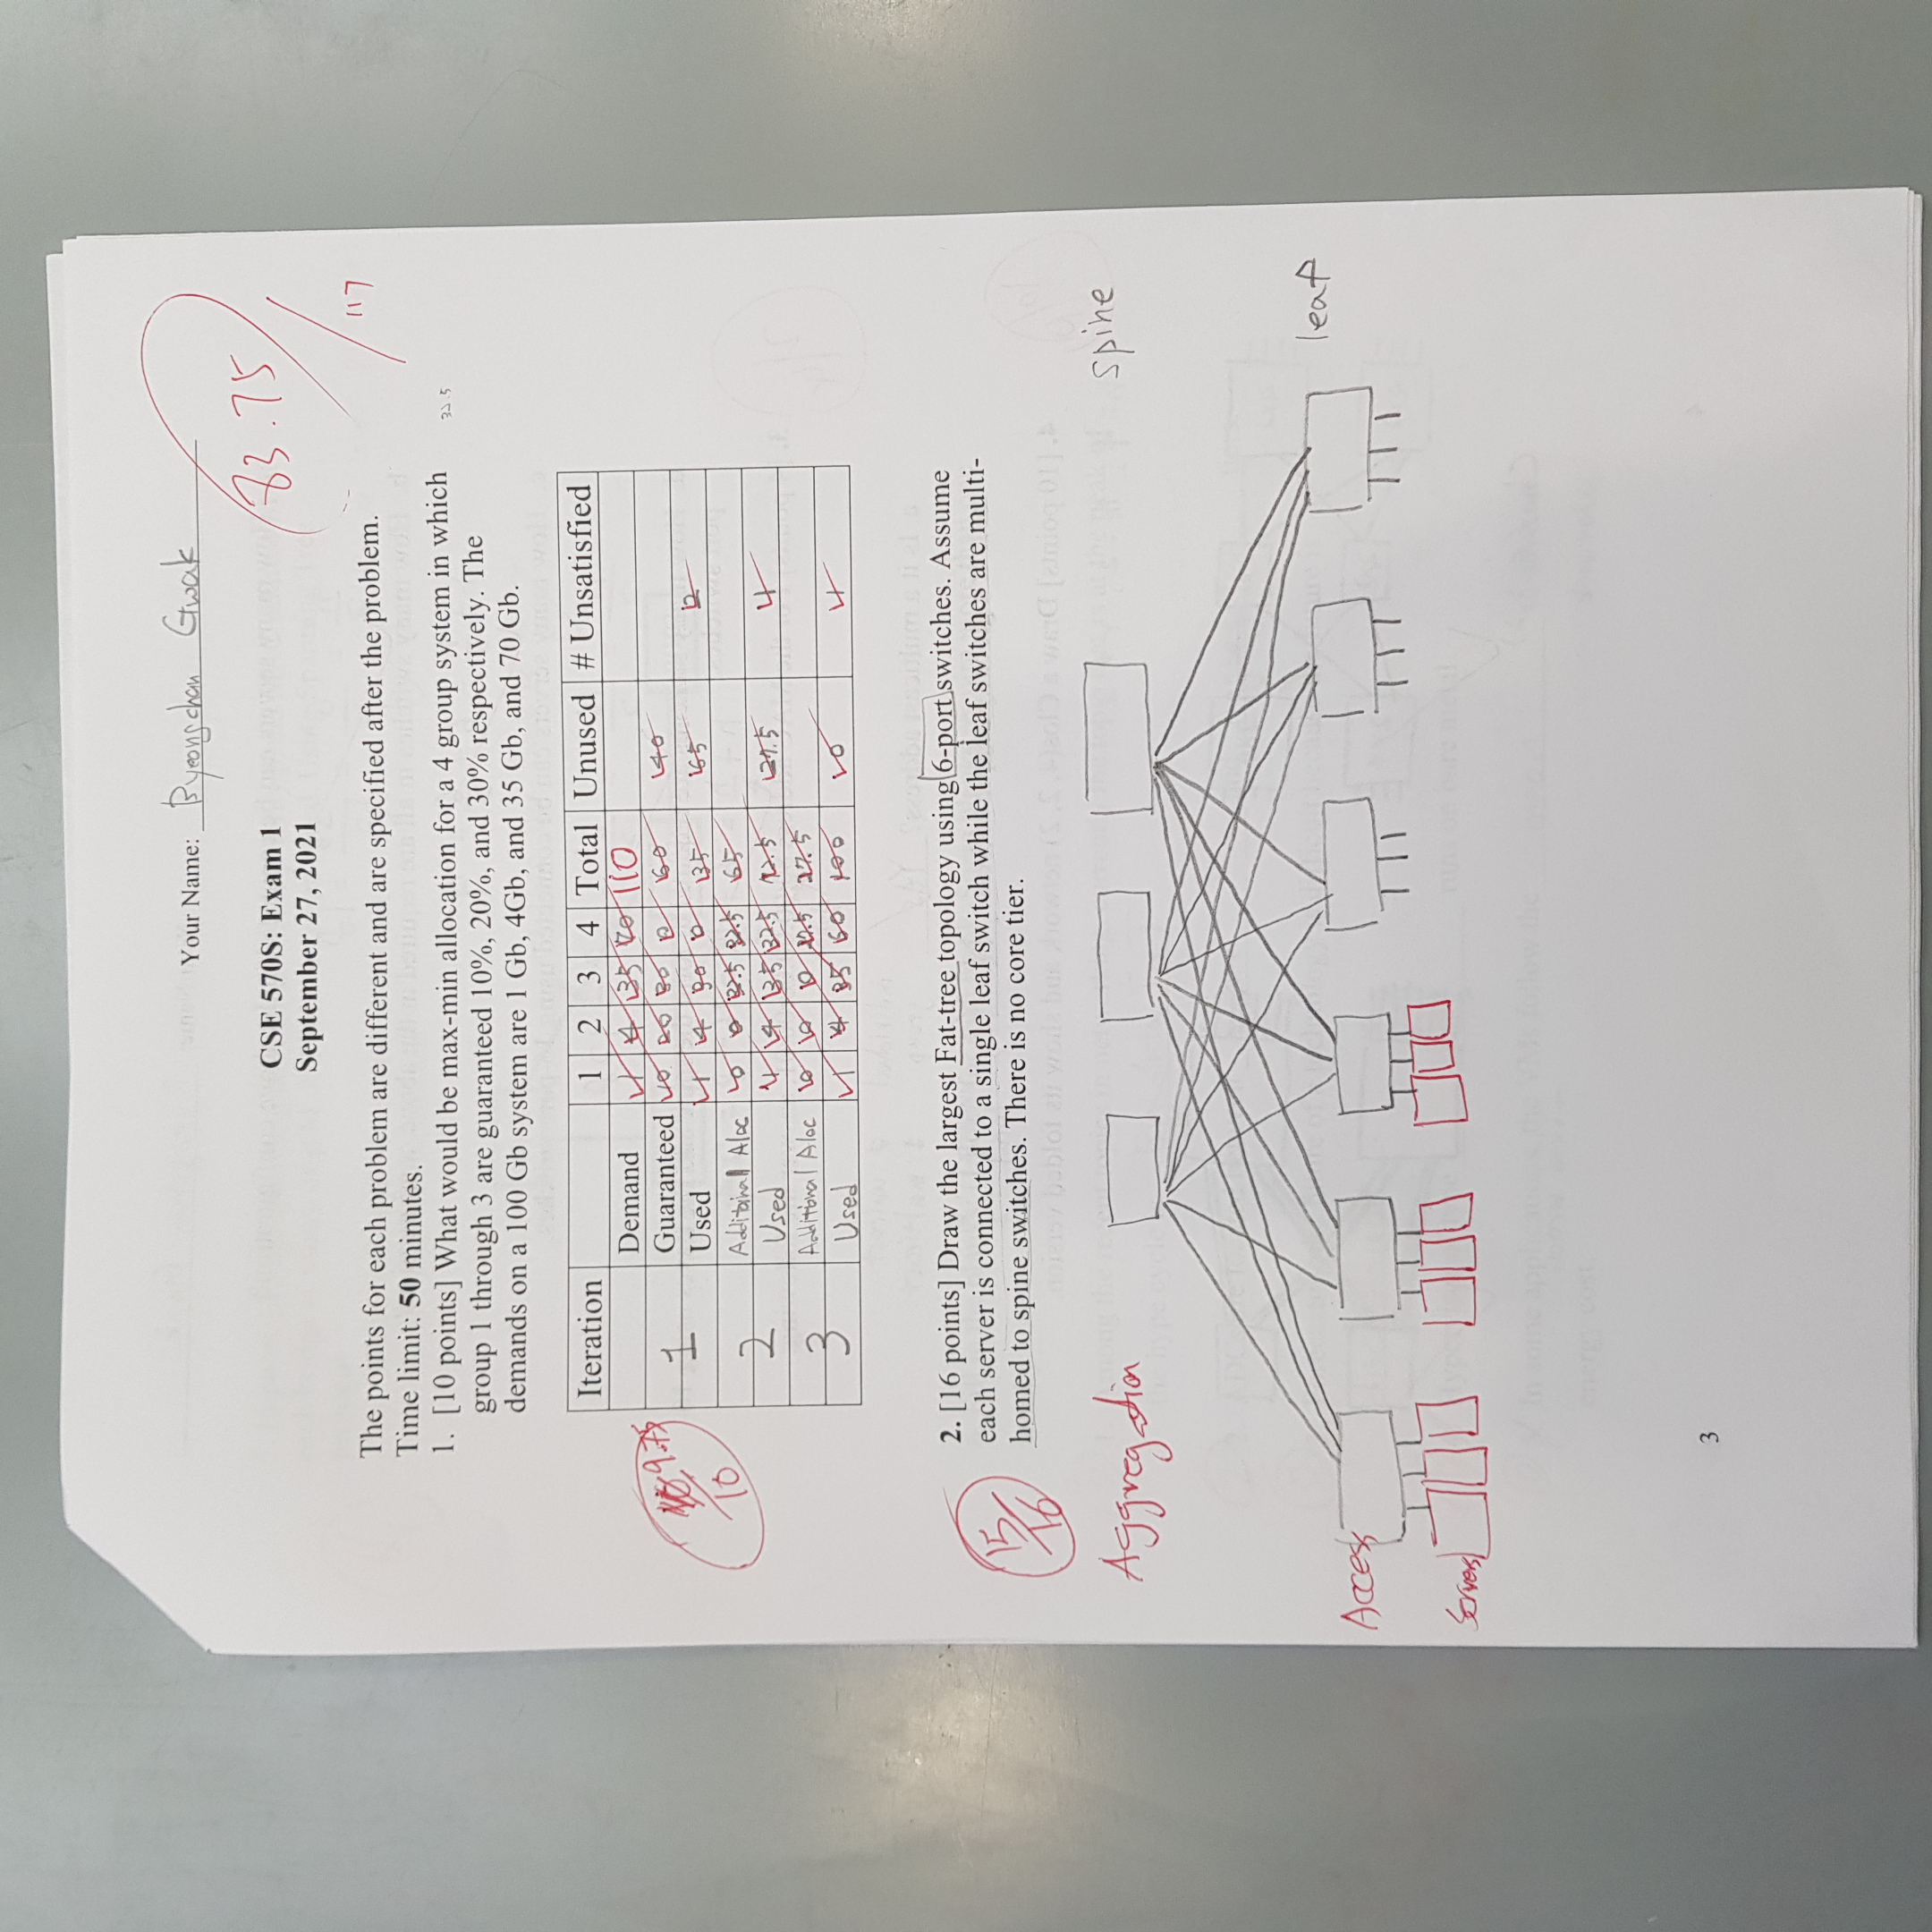 Your Name: Byeongchan Gwak
83.75/117
CSE 570S: Exam 1
September 27, 2021
The points for each problem are different and are specified after the problem.
Time limit: 50 minutes.
1. [10 points] What would be max-min allocation for a 4 group system in which
32.5
group 1 through 3 are guaranteed 10%, 20%, and 30% respectively. The
demands on a 100 Gb system are 1 Gb, 4Gb, and 35 Gb, and 70 Gb.
Iteration 1 2 3 4 Total Unused # Unsatisfied
Demand 1 4 35 70 110
1 Guaranteed 10 20 30 0 60 40
Used 1 4 30 0 35 65 2
9.75/10
2 Additional Aloc 0 0 32.5 32.5 65
Used 1 4 35 32.5 72.5 27.5 1
3 Additional Aloc 0 0 0 27.5 27.5
Used 1 4 35 60 100 0 1
2. [16 points] Draw the largest Fat-tree topology using 6-port switches. Assume
each server is connected to a single leaf switch while the leaf switches are multi-
homed to spine switches. There is no core tier.
15/16
Aggregation spine
Access leaf
Servers
3